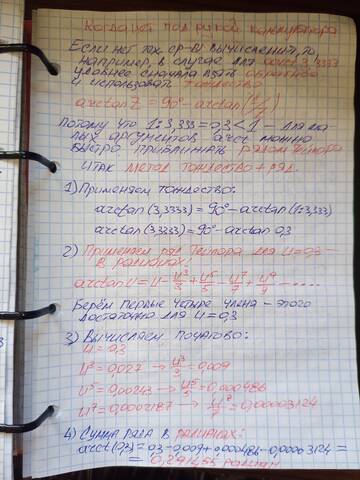 Когда нет под рукой калькулятора
Если нет так ср-в вычислений, то,
например, в случае для arctg 3,3333
удобнее сначала взять обратное
и использовать тождество
arctan Z = 90° - arctan(1/Z)
Потому что 1:3,333 = 0,3 < 1 – для ма-
лых аргументов arct можно
быстро приближать рядом Тейлора
Итак метод тождество + ряд.
1) Применяем тождество:
arctan(3,3333) = 90° - arctan(1:3,333)
arctan(3,3333) = 90° - arctan 0,3
2) Применяем ряд Тейлора для U=0,3 –
в радианах:
arctan U = U - U³/3 + U⁵/5 - U⁷/7 + U⁹/9 - ....
Берём первые четыре члена – этого
достаточно для U=0,3
3) Вычисляем поэтапно:
U = 0,3
U³ = 0,027 → U³/3 = 0,009
U⁵ = 0,00243 → U⁵/5 = 0,000486
U⁷ = 0,0002187 → U⁷/7 = 0,00003124
4) Сумма ряда в радианах:
arct(0,3) = 0,3 - 0,009 + 0,000486 - 0,00003124 =
= 0,291455 радиан